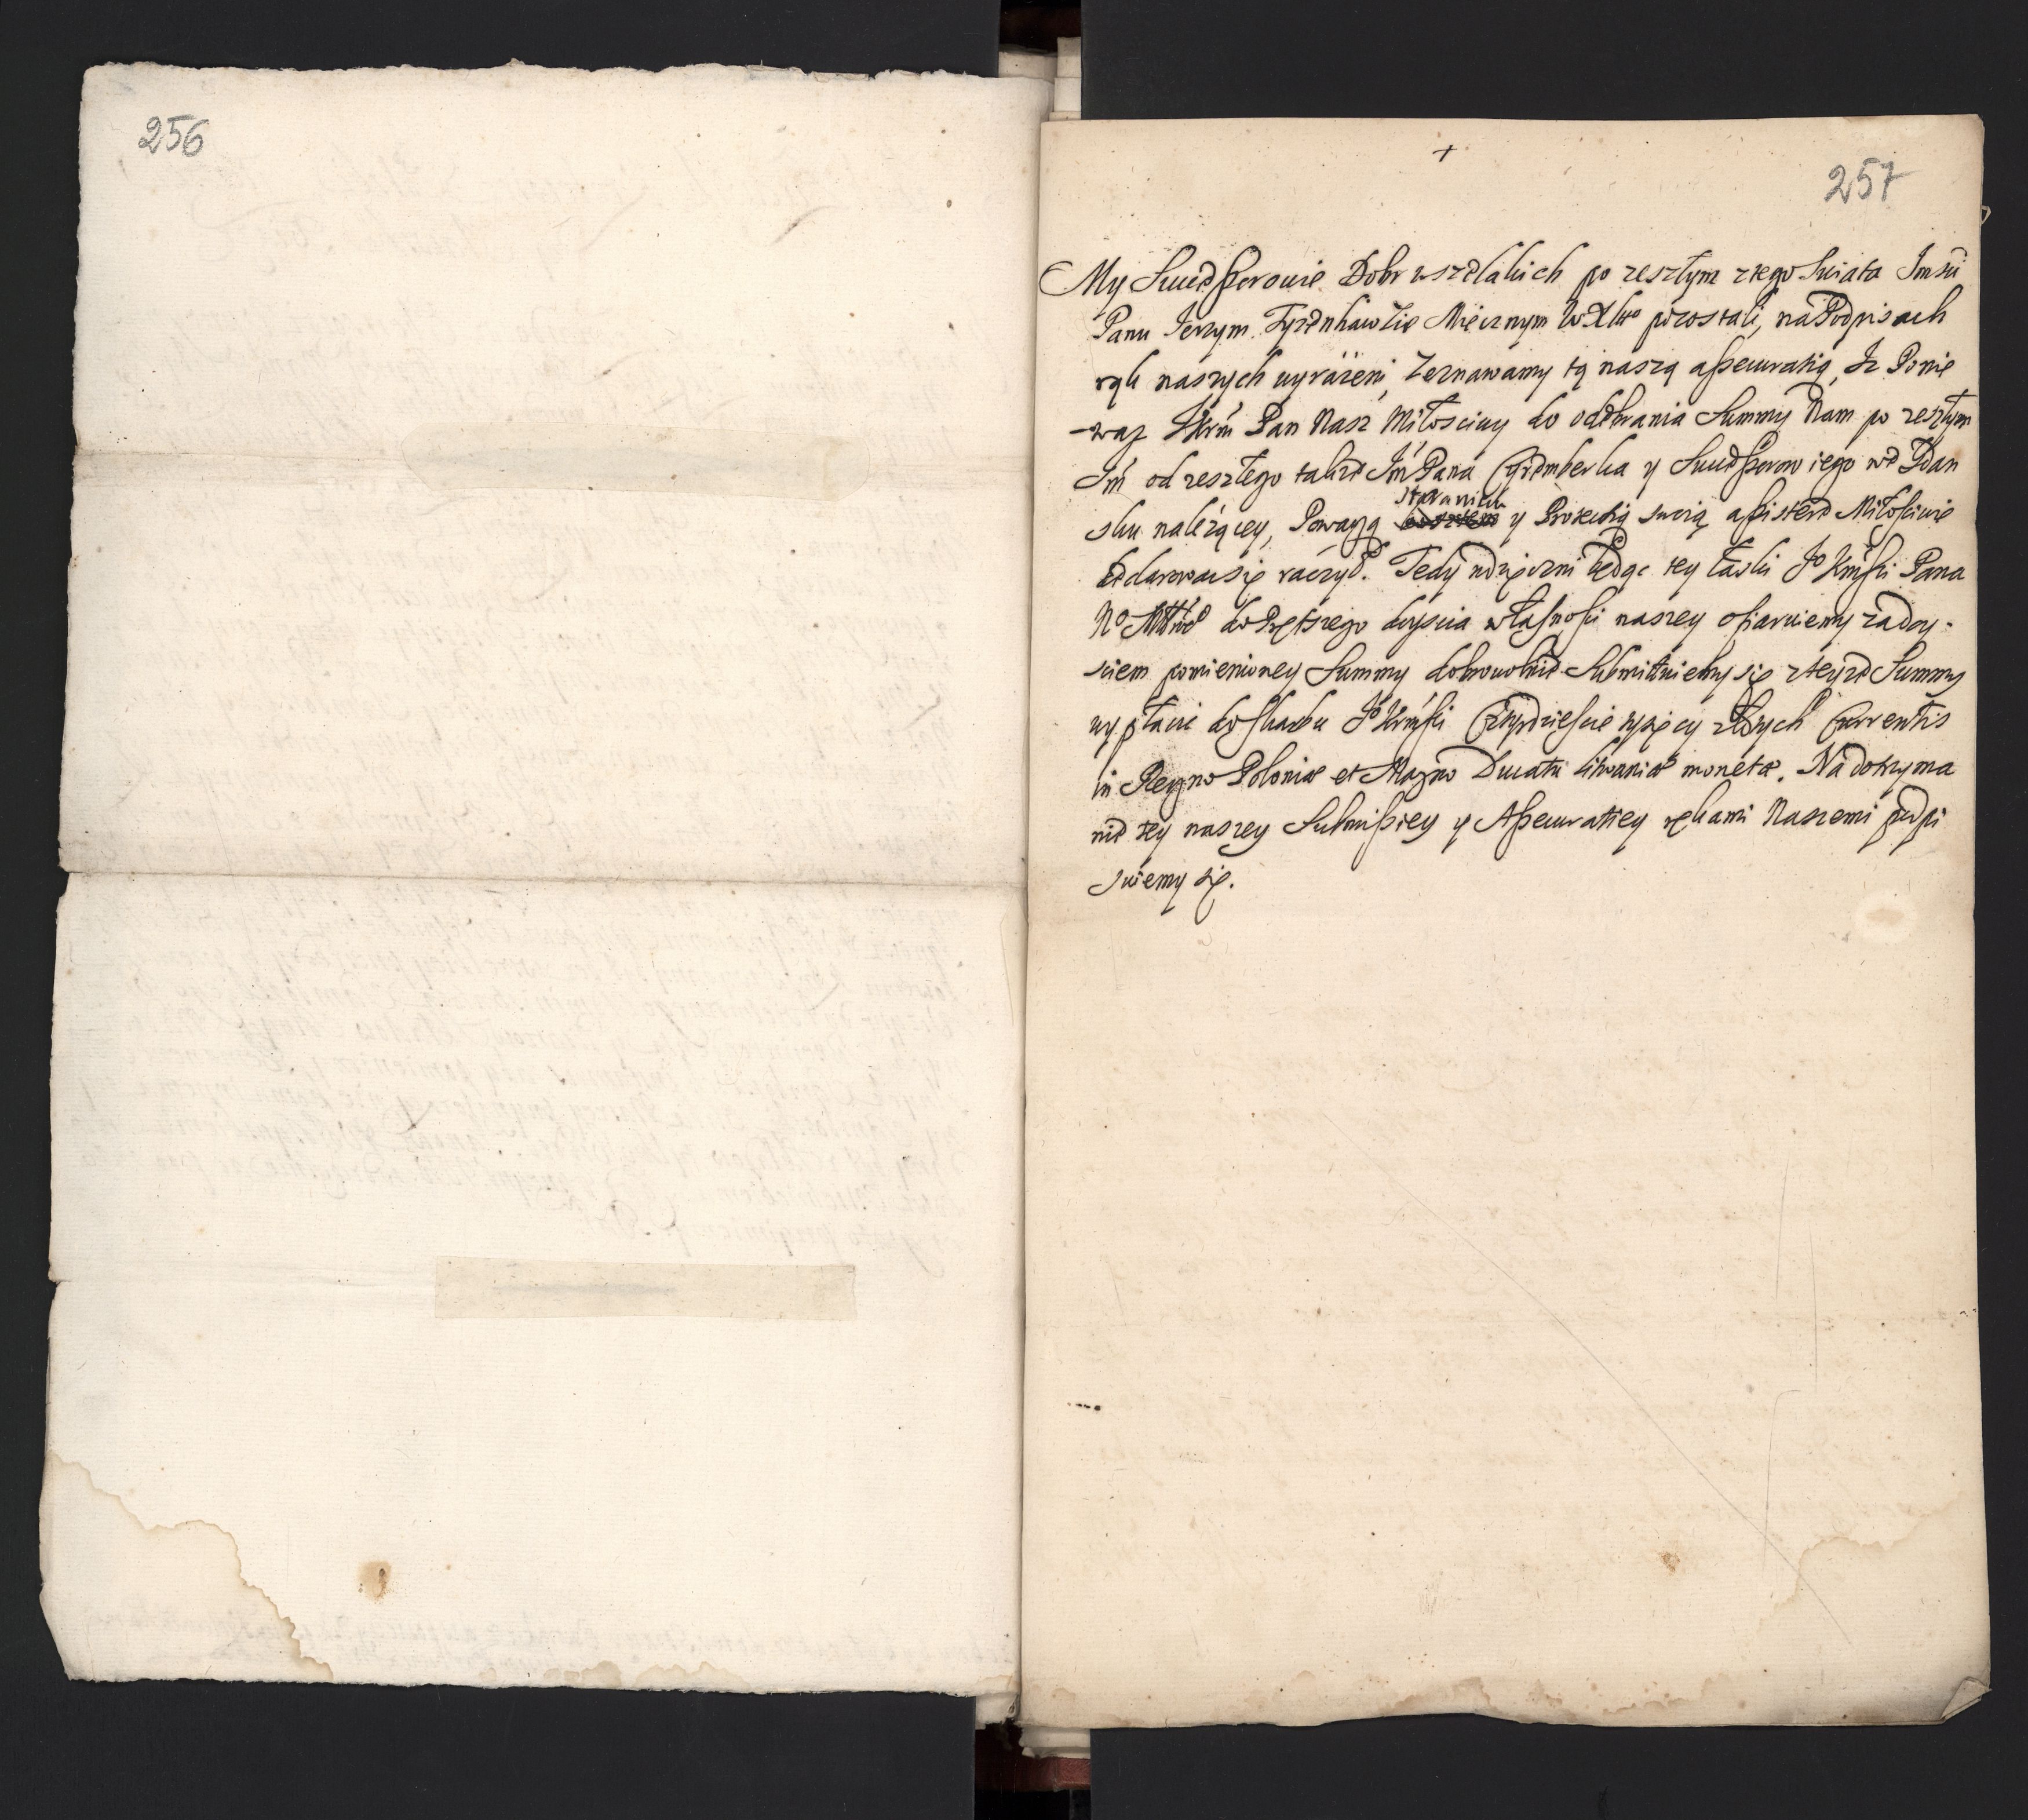 256
+
257
My Sukcessorowie Dobr wszelakich po zeszłym z tego Swiata Jmsci
Panu Jerzym Tyzenhawzie Miecznym WXLtto pozostali, na Podpisach
rąk naszych wyrazeni, Zeznawamy tą naszą assecuratią, Iz Ponie
-waz JKrm Pan Nasz Miłosciwy do odebrania Summy Nam po zeszłym
Jm od zeszłego takze Jm Pana y Sukcessorow iego we Gdan
sku nalezącey, Powagą staraniem y Protectią swoią Miłosciwie
raczył. Tedy wdzięczni będąc tey łaski Jo Krmsci Pana
No do Prętszego doyscia własnosci naszey ofiaruiemy za doy-
sciem pomienioney Summy dobrowolnie Submittuiemy się z teyze Summy
wypłacic do Skarbu Jo Krmsci Czterdziescie tysięcy złotych Currentis
in Regno Poloniæ et Magno Ducatu Litvaniæ monetæ. Na dotrzyma
nie tey naszey Submissiey y Assecuratiey rękami Naszemi podpi
suiemy się.